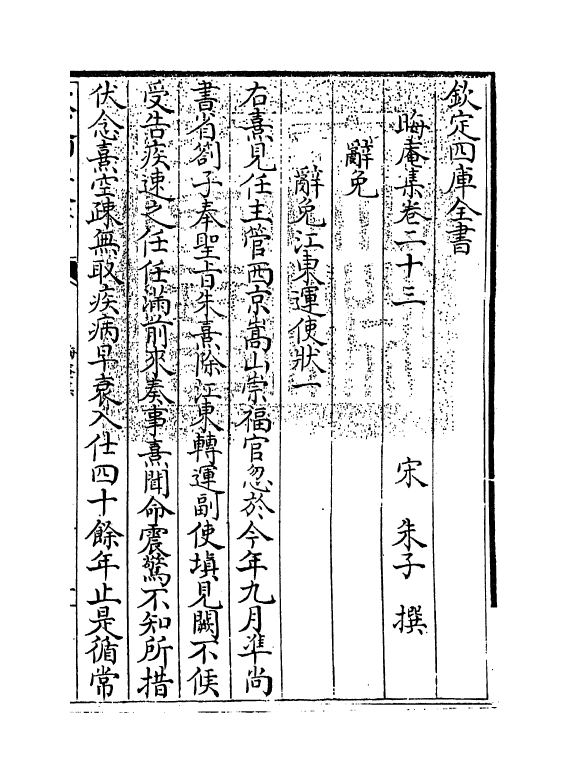 欽定四庫全書
晦庵集卷二十三　宋　朱子　撰
辭免
辭免江東運使狀一
右熹見任主管西京嵩山崇福宮忽於今年九月準尚
書省劄子奉聖旨朱熹除江東轉運副使填見闕不候
受告疾速之任任滿前來奏事熹聞命震驚不知所措
伏念熹空疎無取疾病早衰入仕四十餘年止是循常